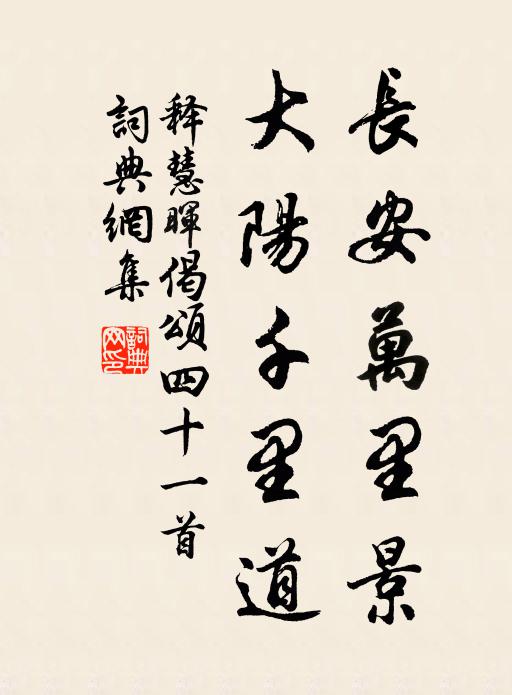 長安萬里景
大陽千里道
释慧暉偈頌四十一首
詞典網集
詞典網印